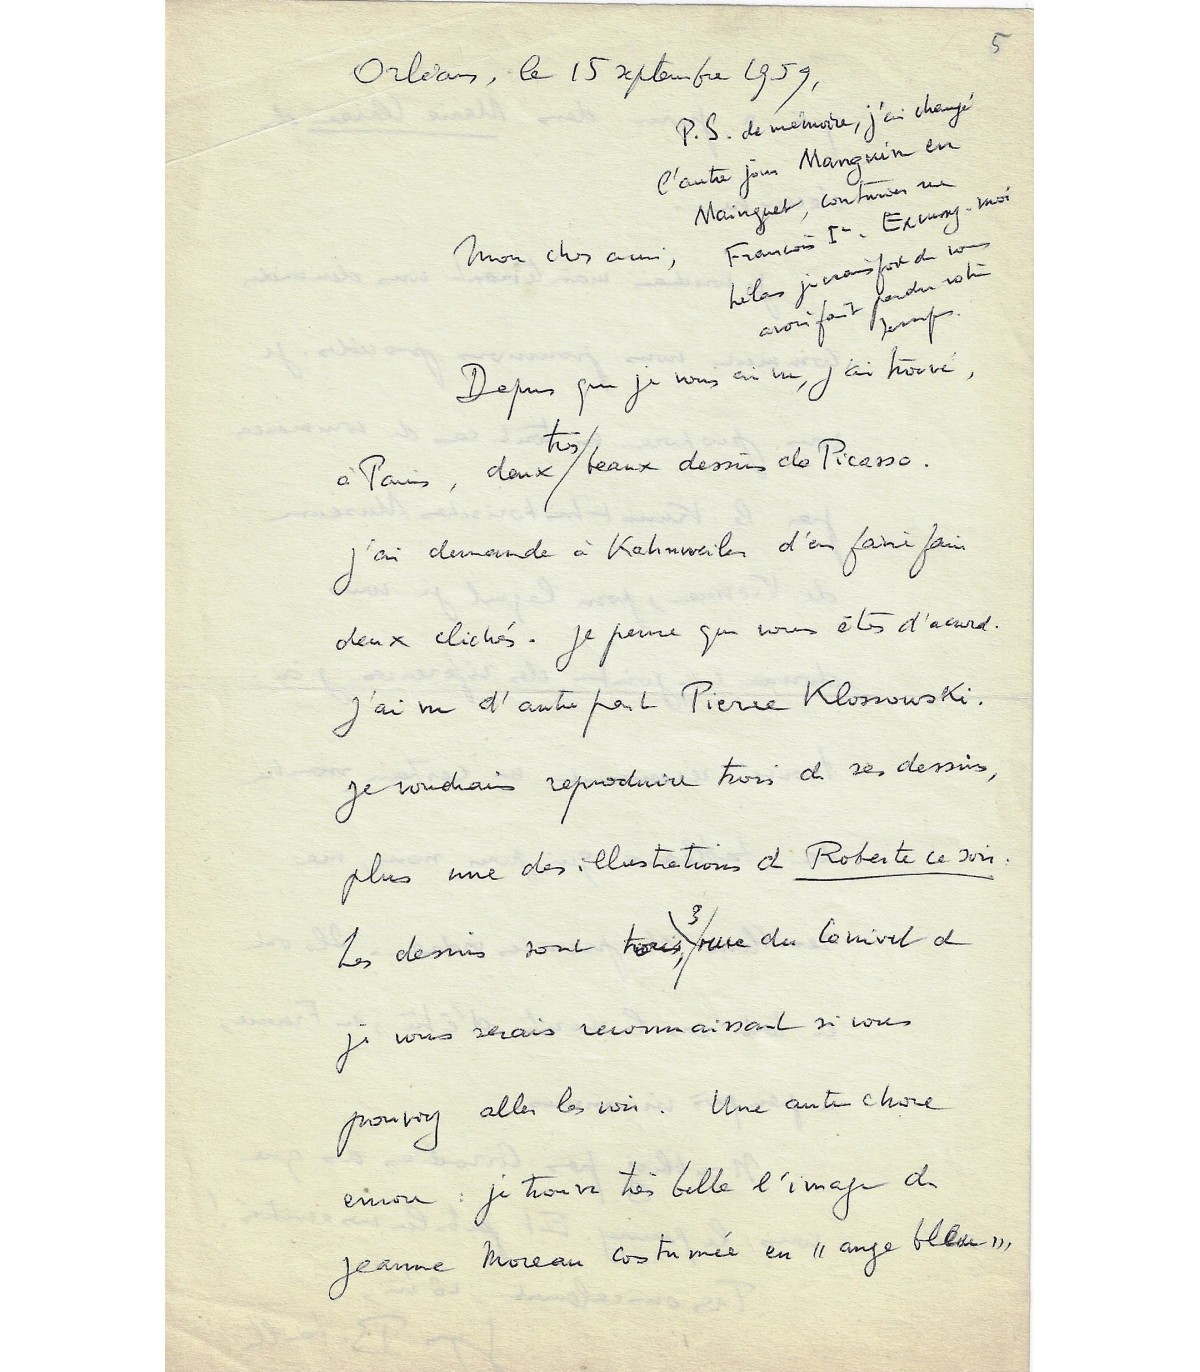 5
Orléans, le 15 septembre 1959,
P.S. de mémoire, j'ai changé
l'autre jour Manguin en
Mainguet, couturier rue
François Ier. Excusez-moi
hélas je crains fort de vous
avoir fait perdre votre
temps.
Mon cher ami,
Depuis que je vous ai vu, j'ai trouvé,
très
à Paris, deux / beaux dessins de Picasso.
J'ai demandé à Kahnweiler d'en faire fair
deux clichés. Je pense que vous êtes d'accord.
J'ai vu d'autre part Pierre Klossowski.
Je voudrais reproduire trois de ses dessins,
plus une des illustrations de Roberte ce soir.
3
Les dessins sont rue du Canivet &
je vous serais reconnaissant si vous
pouvez aller les voir. Une autre chose
encore : je trouve très belle l'image de
Jeanne Moreau costumée en "ange bleu",